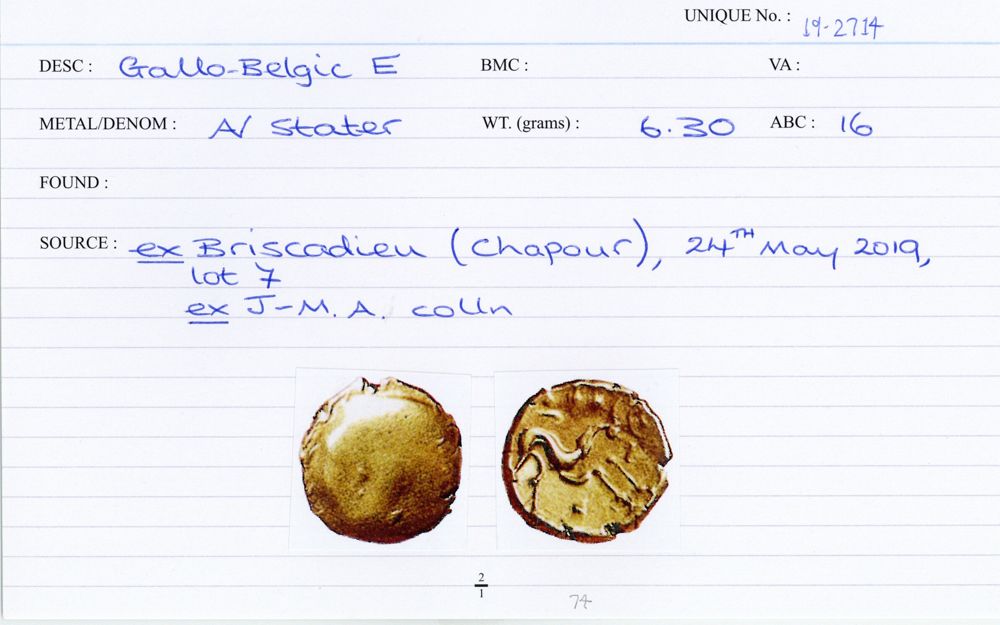 UNIQUE No. : 19-2714
DESC : Gallo-Belgic E BMC : VA :
METAL/DENOM : A/ Stater WT. (grams) : 6.30 ABC : 16
FOUND :
SOURCE : ex Briscadieu (Chapour), 24TH May 2019,
lot 7
ex J-M. A. colln
2/1
74